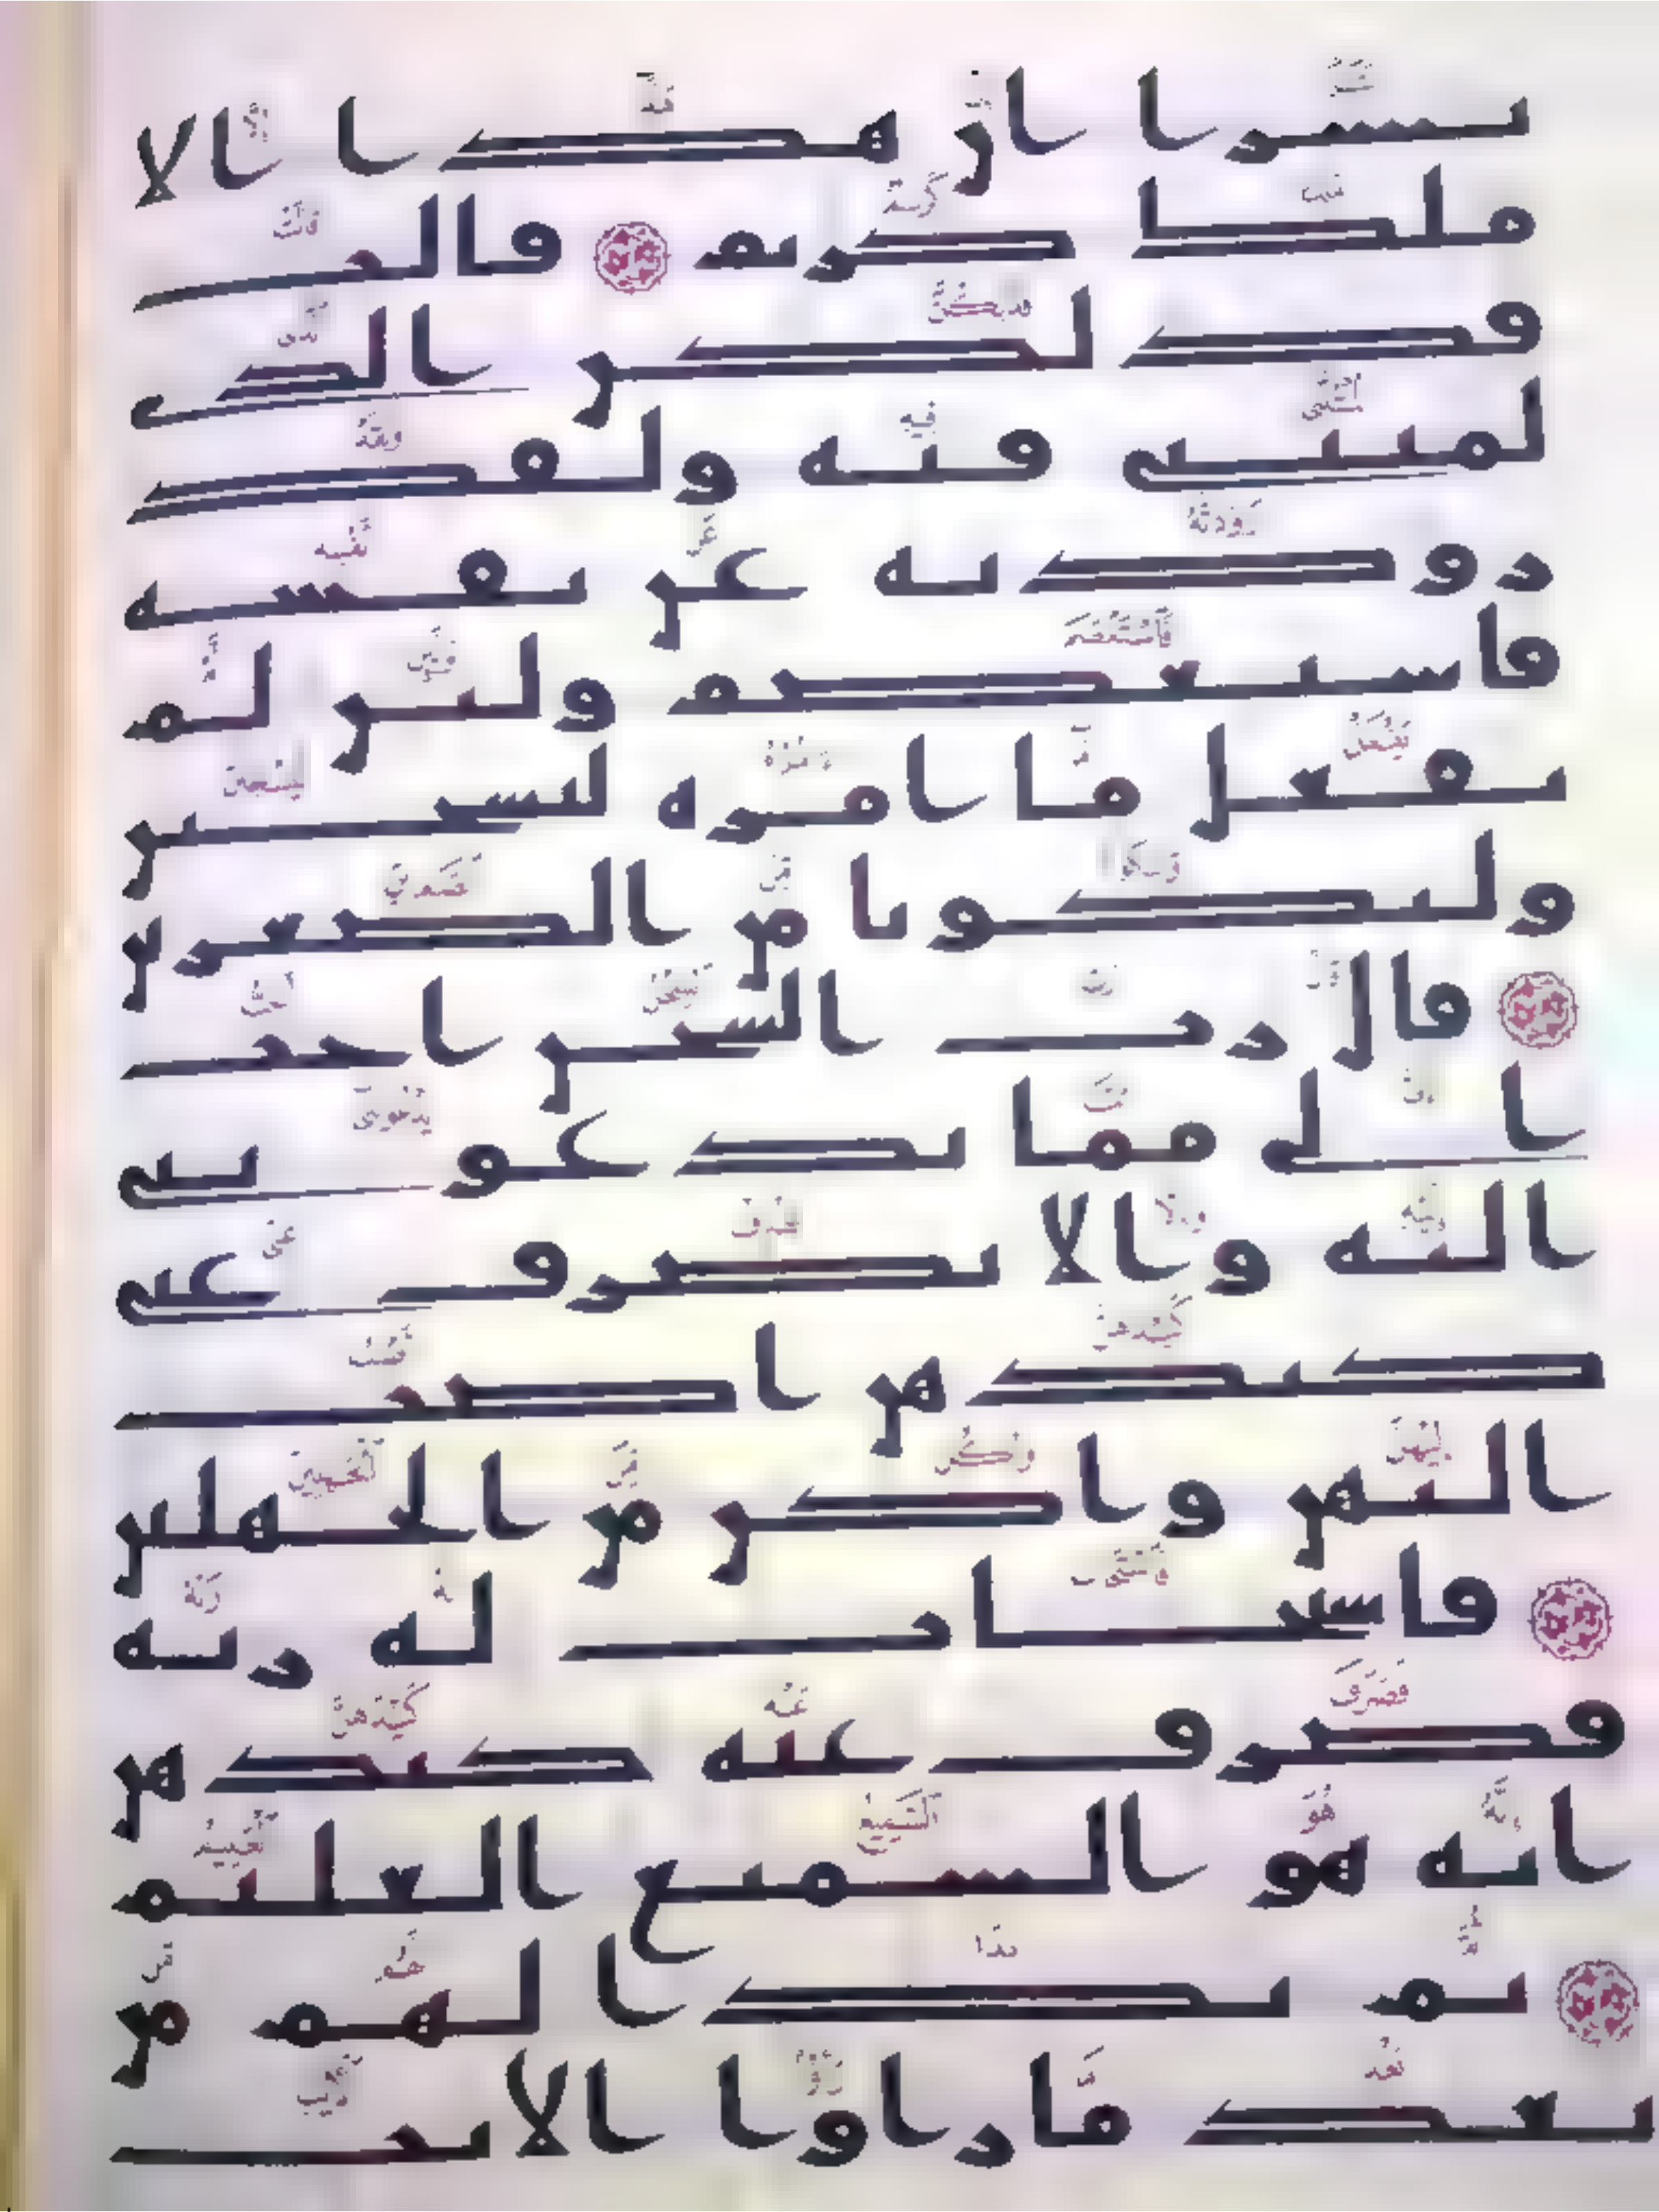 بشرا ان هذا الا
ملك كريم قالت
فذلكن الذي
لمتنني فيه ولقد
رودته عن نفسه
فاستعصم ولئن لم
يفعل ما امره ليسجنن
وليكونا من الصغرين
قال رب السجن احب
الي مما يدعونني
اليه والا تصرف عني
كيدهن اصب
اليهن واكن من الجهلين
فاستجاب له ربه
فصرف عنه كيدهن
انه هو السميع العليم
ثم بدا لهم من
بعد ما راوا الايت